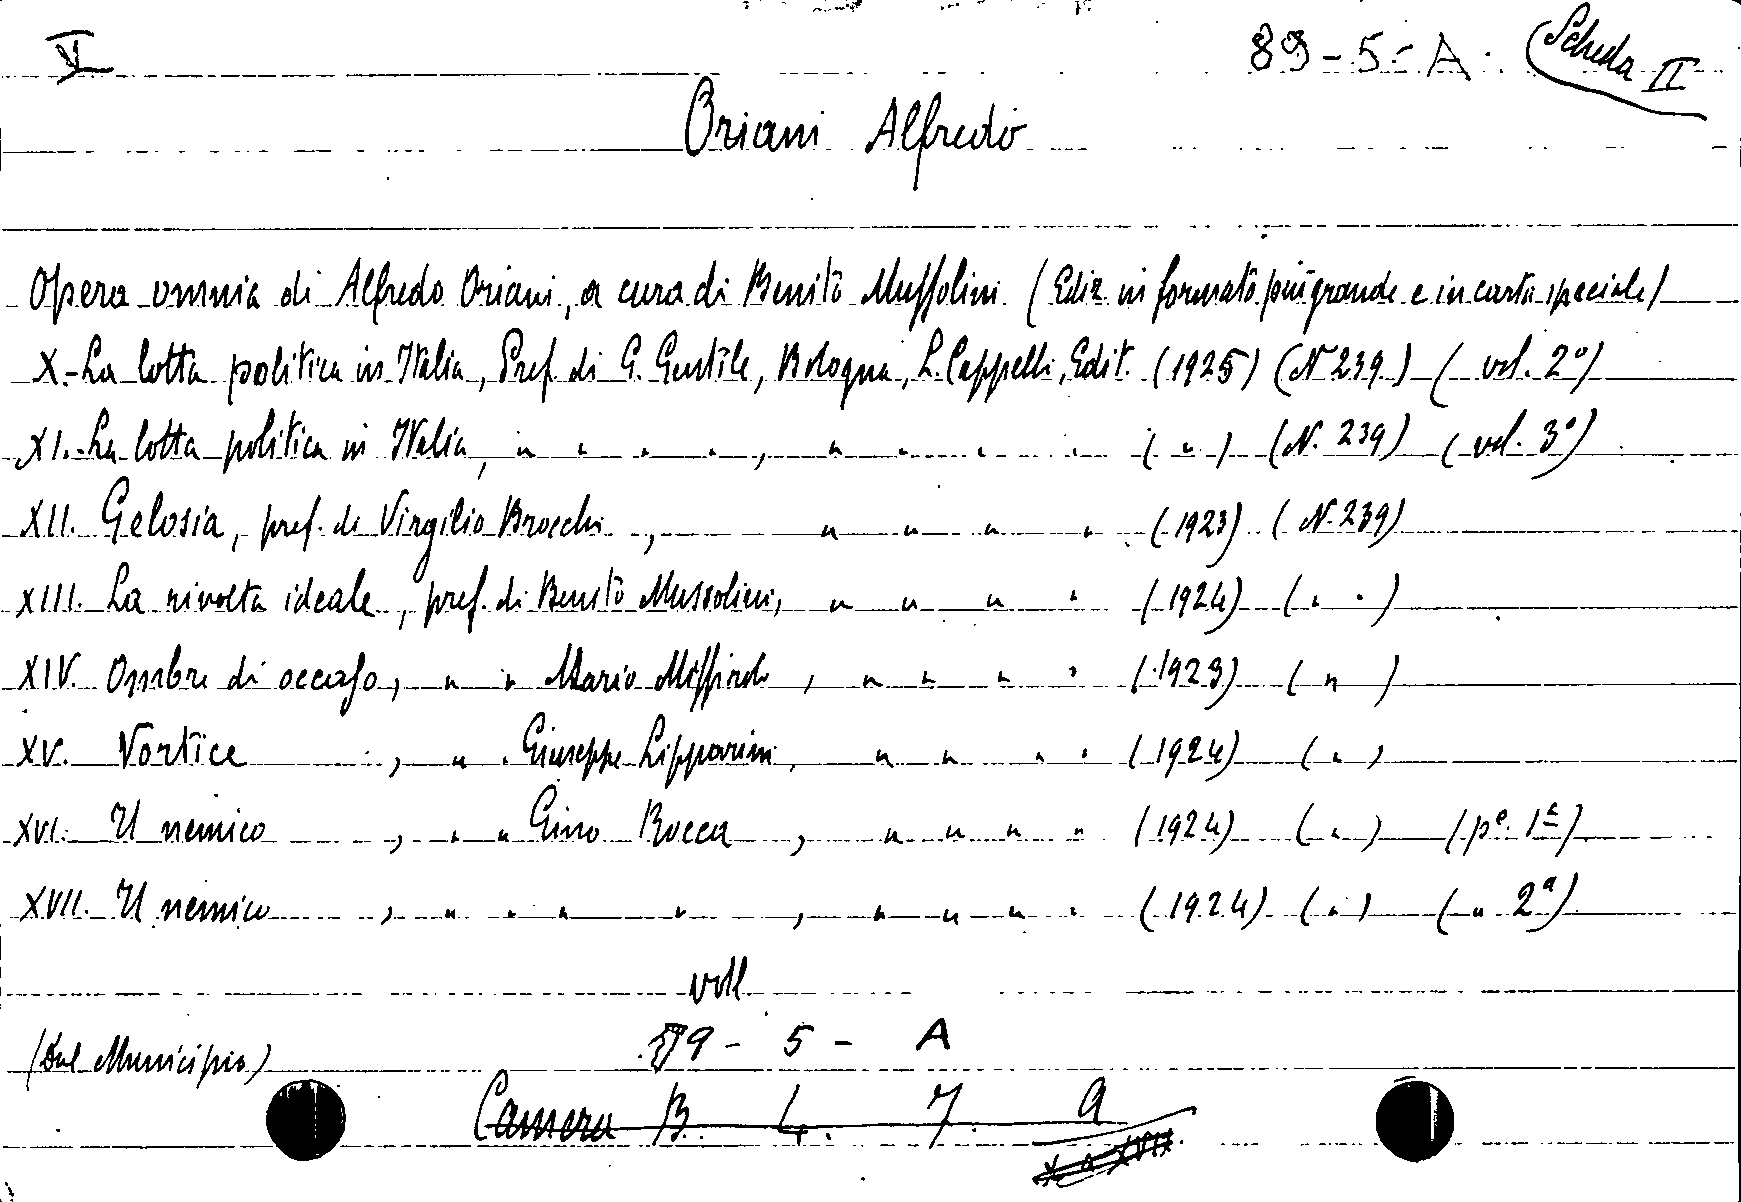 V 89-5-A. Scheda II
Oriani Alfredo
Opera omnia di Alfredo Oriani, a cura di Benito Mussolini (Ediz in formato più grande e in carta speciale)
X.-La lotta politica in Italia, Pref. di G. Gentile, Bologna, L. Cappelli, Edit. (1925) (N 239) ( vol. 2°)
XI.-La lotta politica in Italia, " " " " , " " " " ( " ) (N. 239) ( vol. 3°)
XII. Gelosia, pref. di Virgilio Brocchi , " " " " (1923) (N. 239)
XIII. La rivolta ideale, pref. di Benito Mussolini, " " " " (1924) ( " " )
XIV. Ombre di occaso, " " Mario Missiroli , " " " " (1923) ( " )
XV. Vortice , " " Giuseppe Lipparini, " " " " (1924) ( " )
XVI. Il nemico , " " Gino Rocca , " " " " (1924) ( " ) (pe. 1ª)
XVII. Il nemico , " " " " , " " " " (1924) ( " ) ( " 2ª)
voll
(Dal Municipio) 89 - 5 - A
Camera B. 4. 7. a
X a XVII